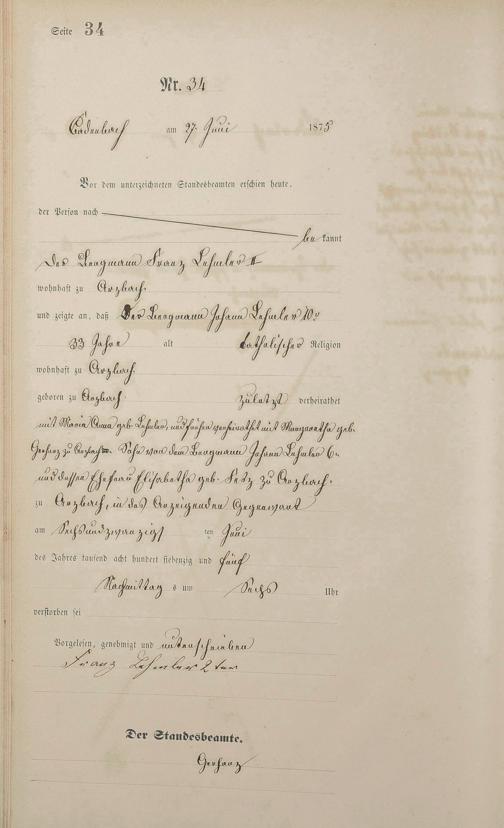 Seite 34
Nr. 34
Cadenbach am 27. Juni 1875
Vor dem unterzeichneten Standesbeamten erschien heute,
der Person nach
be kannt
der Bergmann Franz Lehmler II
wohnhaft zu Arzbach
und zeigte an, daß der Bergmann Johann Lehmler 10r
33 Jahre alt katholischer Religion
wohnhaft zu Arzbach
geboren zu Arzbach zuletzt verheirathet
mit Maria Anna geb. Lehmler, und früher verheirathet mit Margaretha geb.
zu Arzbach Sohn von dem Bergmann Johann Lehmler 6r
und dessen Ehefrau Elisabetha geb. zu Arzbach.
zu Arzbach, in des Anzeigenden Gegenwart
am Sechsundzwanzigs ten Juni
des Jahres tausend acht hundert siebenzig und fünf
Nachmittag s um Sechs Uhr
verstorben sei
Vorgelesen, genehmigt und unterschrieben
Franz Lehmler 2ter
Der Standesbeamte.
Gerharz